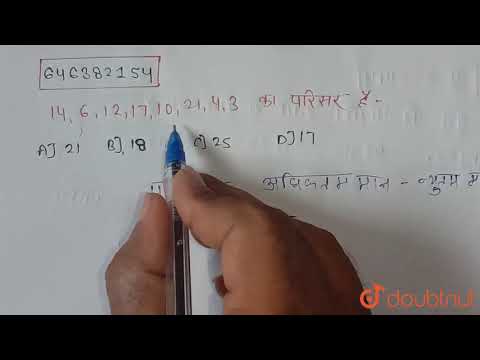 646382154
14, 6, 12, 17, 10, 21, 4, 3 का परिसर है -
A] 21 B] 18 C] 25 D] 17
अधिकतम मान -
doubtnut